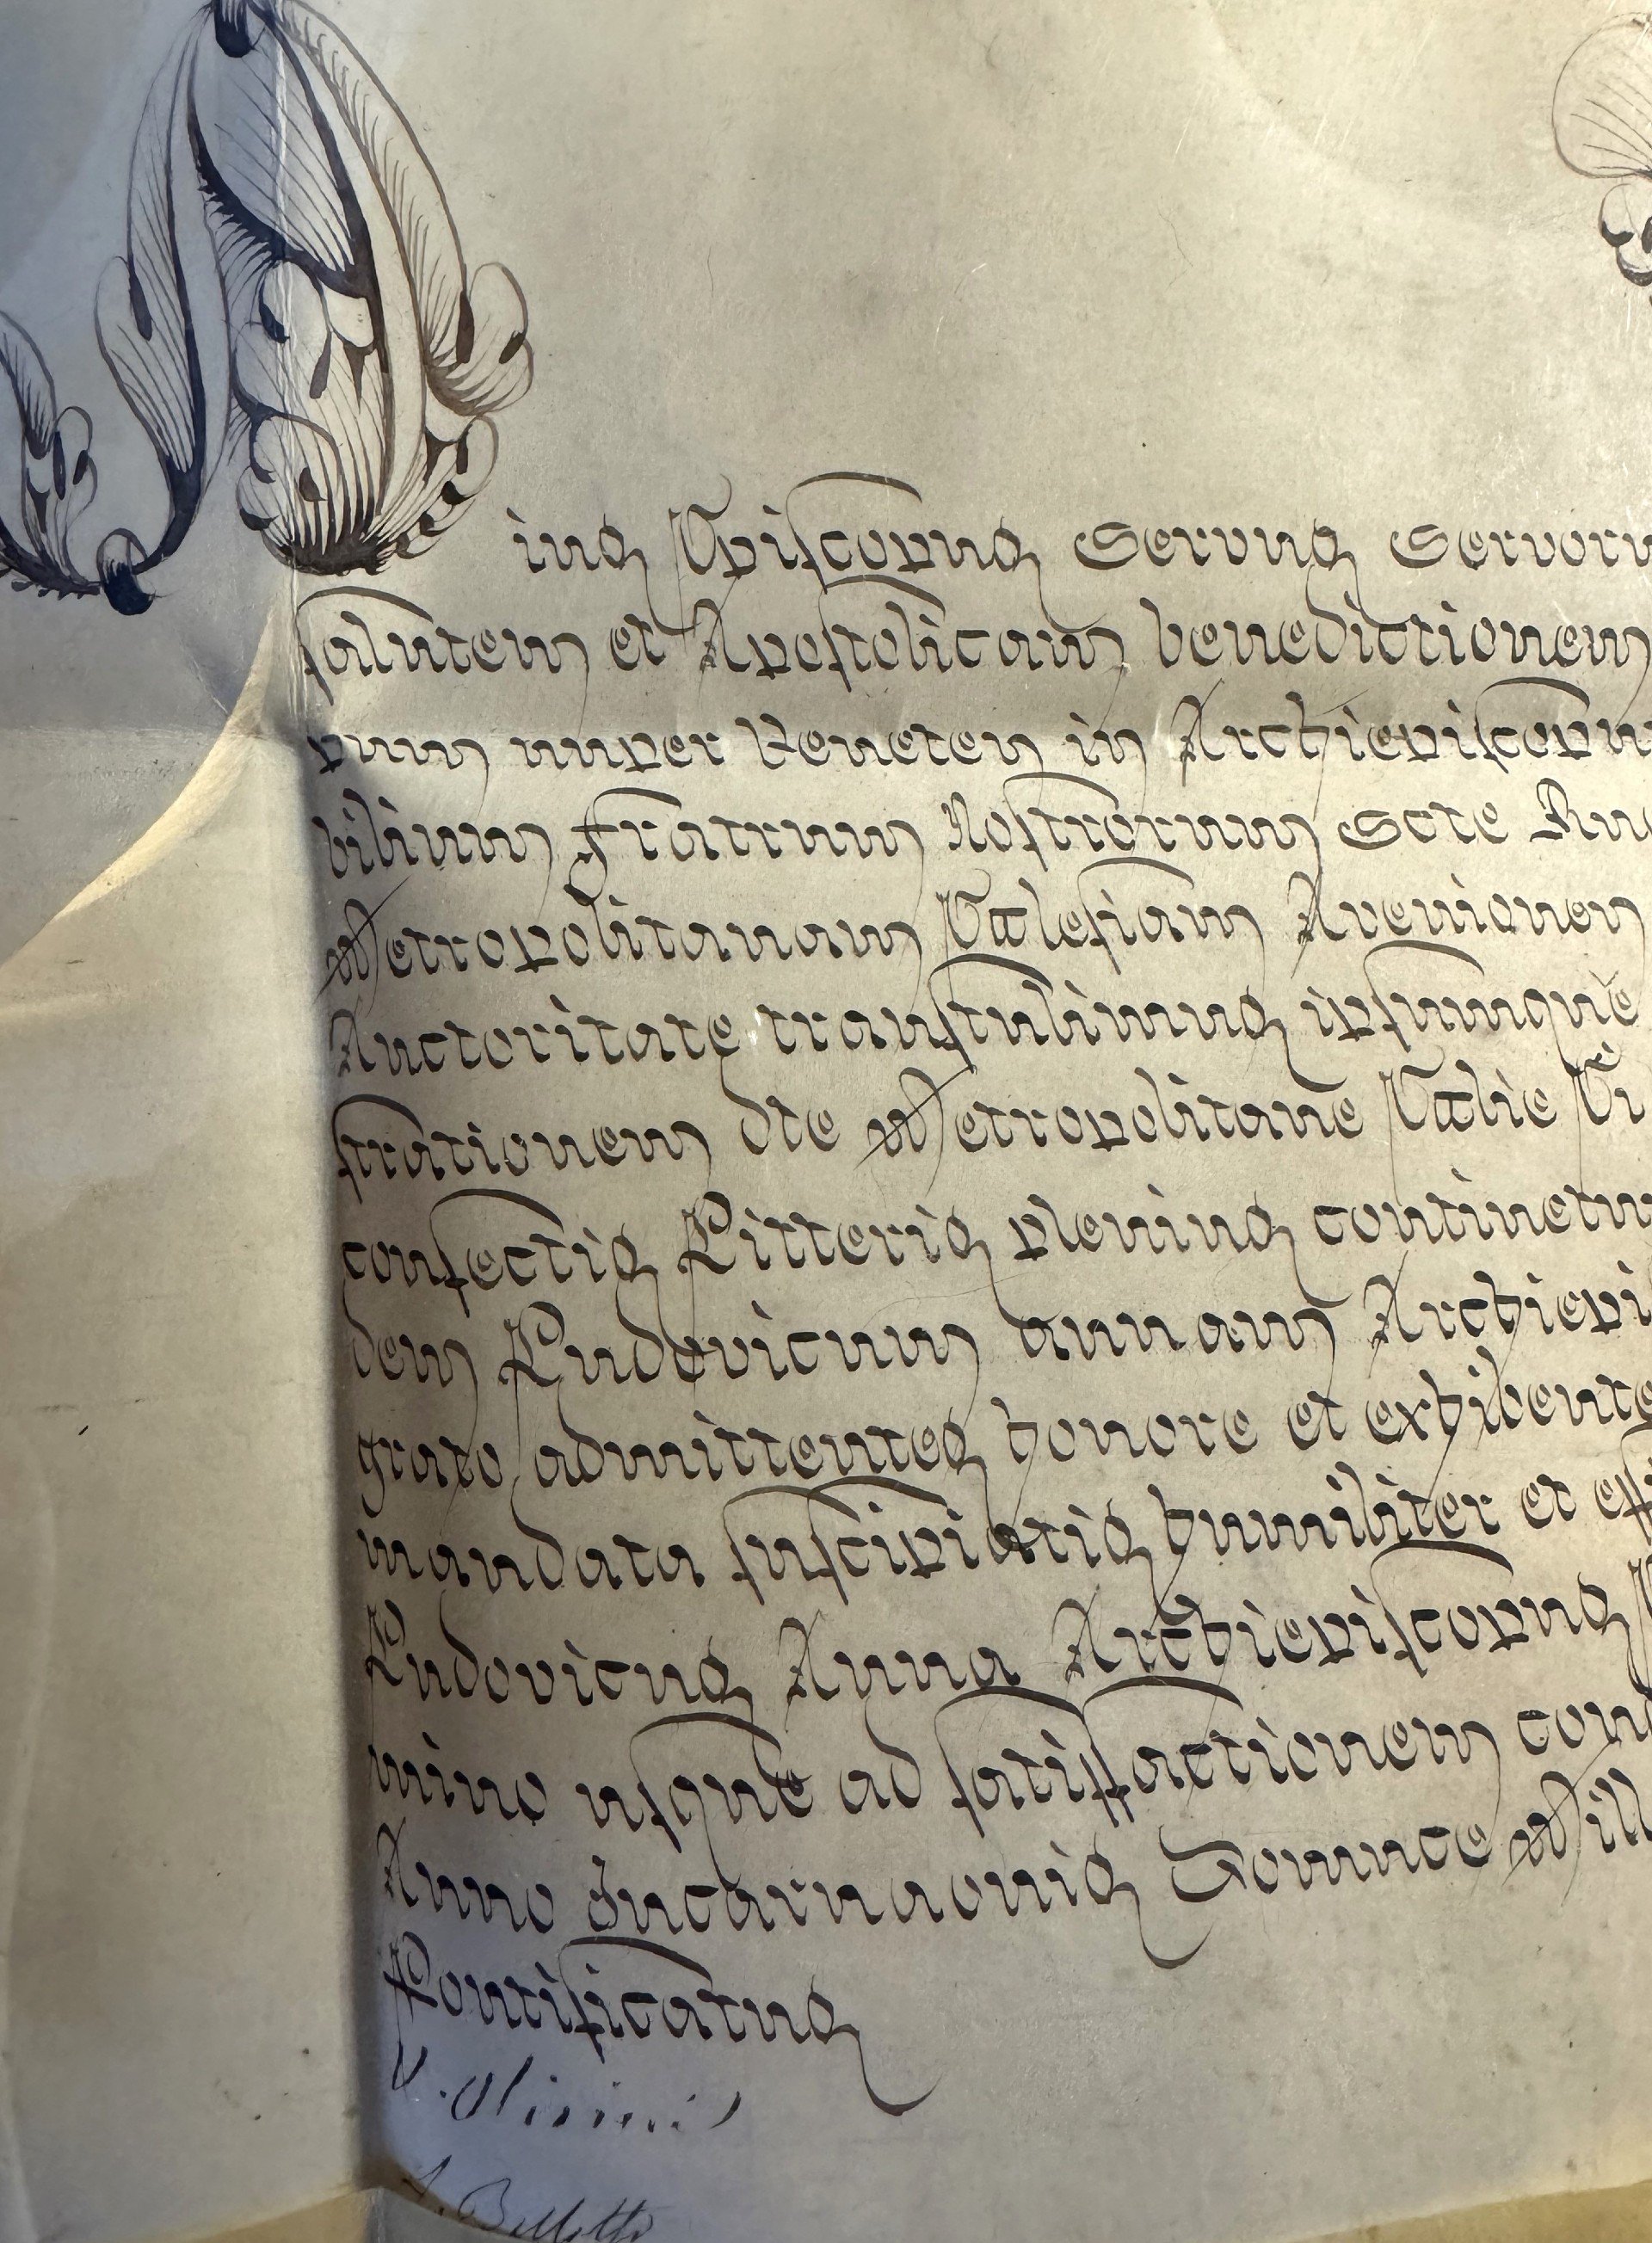 ius Episcopus Servus Servoru
salutem et Apostolicam benedictionem
pum nuper Veneten in Archiepiscopu
bilium Fratrum Nostrorum Scte Ro
Metropolitanam Ecclesiam Avenionen
Auctoritate transtulimus ipsumque
strationem dte Metropolitane Ecclie
confectis Litteris plenius continetu
dem Ludovicum annam Archiepi
grato admittentes honore et exhibente
mandata suscipiatis humiliter et eff
Ludovicus Anna Archiepiscopus
mino usque ad satisfactionem con
Anno Incarnaonis Domnce Mill
Pontificatus